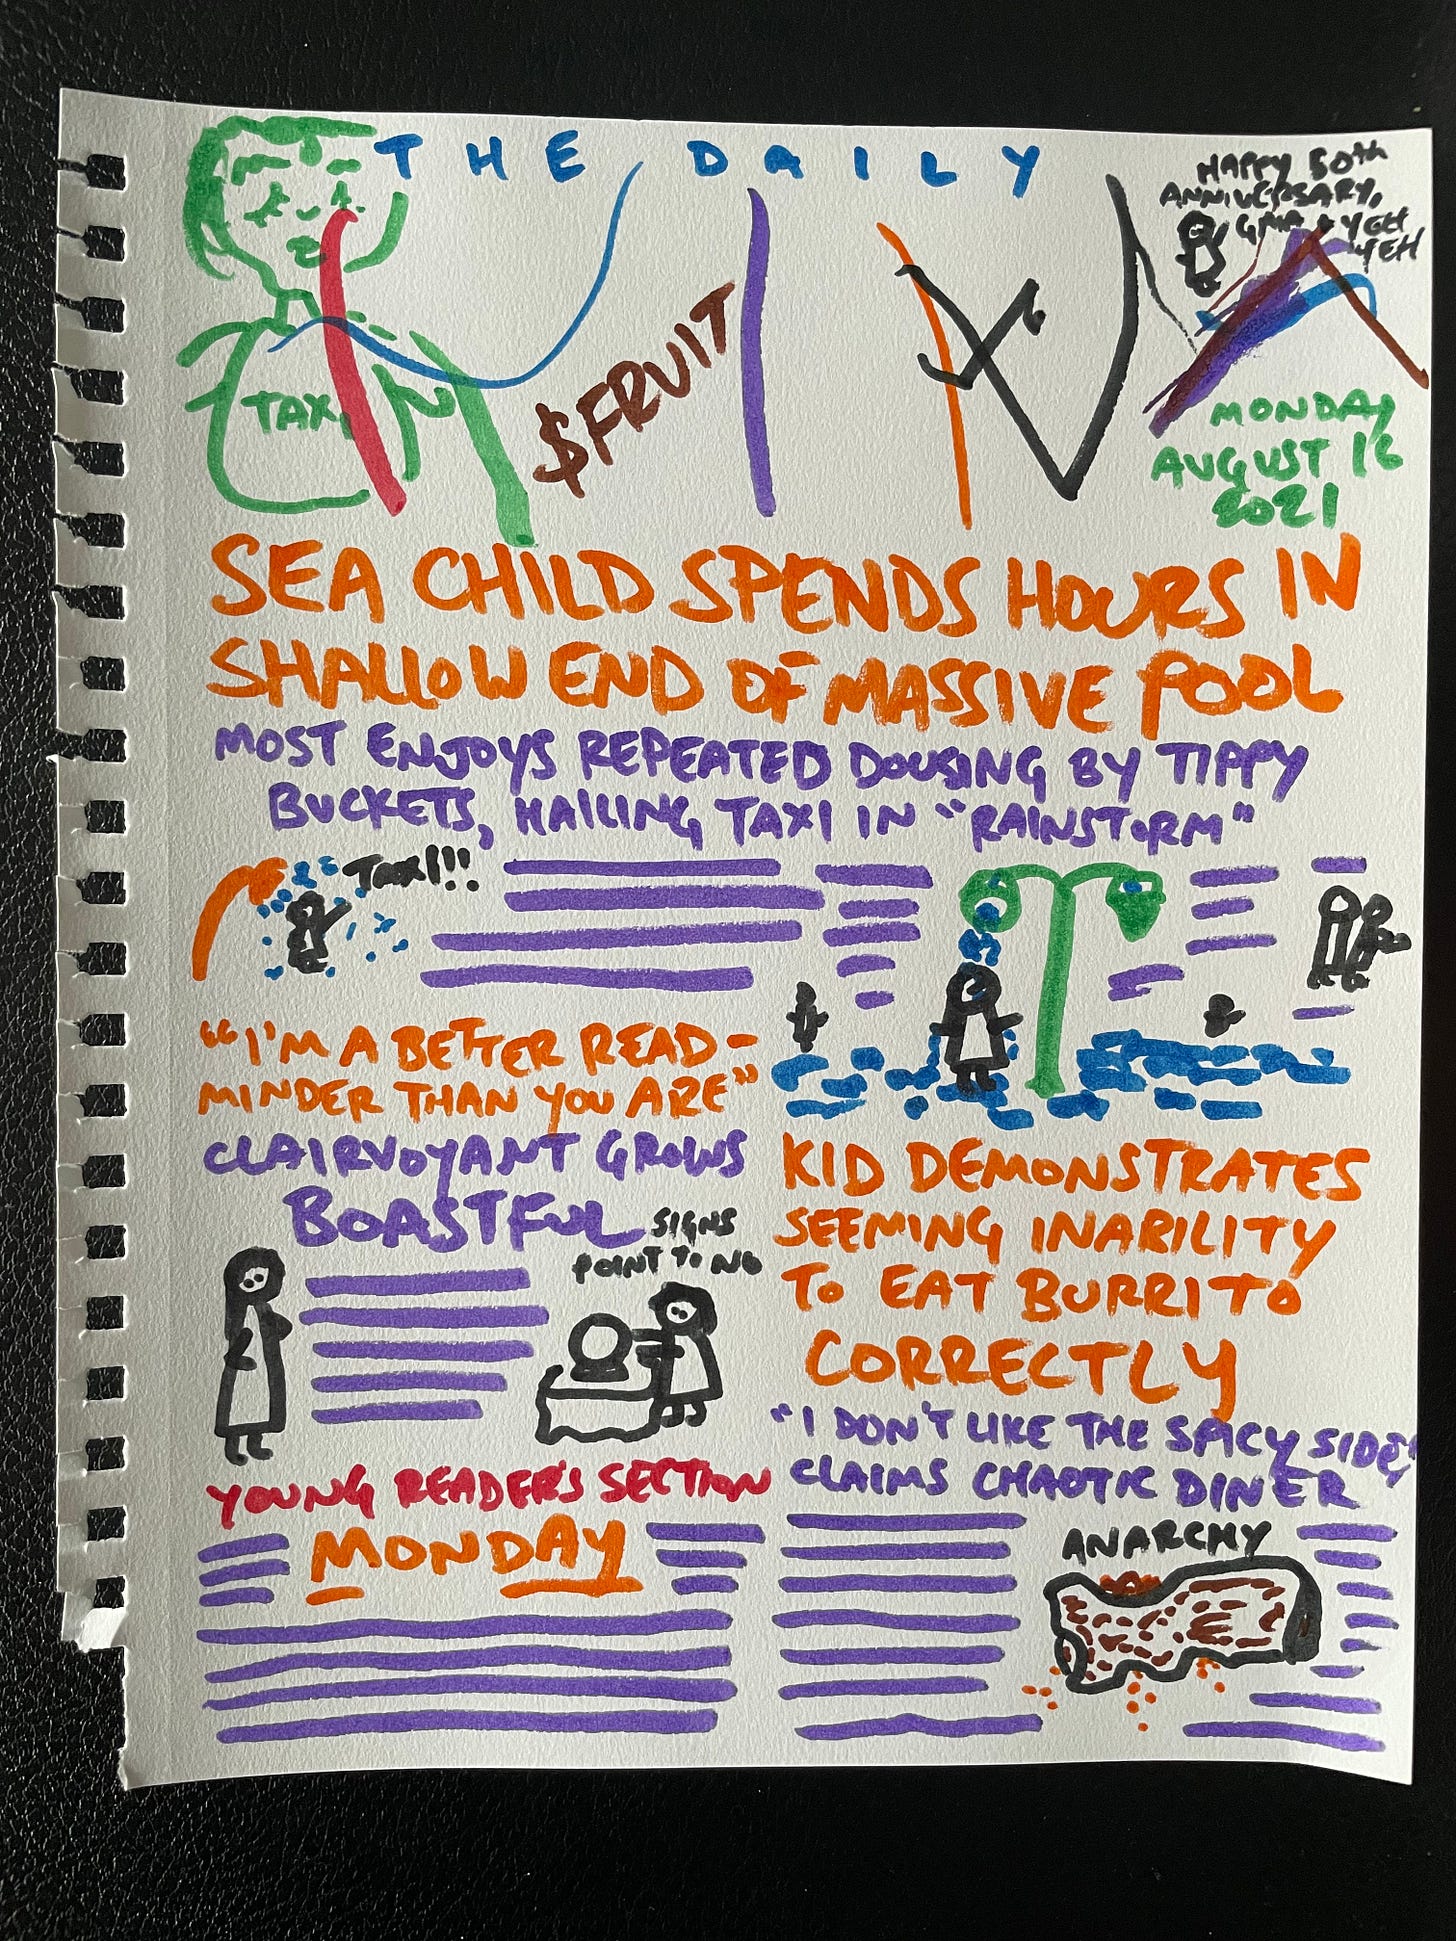 THE DAILY
HAPPY 50th
ANNIVERSARY,
GMA + YEH
YEH
TAXI
$FRUIT
MONDAY
AUGUST 16
2021
SEA CHILD SPENDS HOURS IN
SHALLOW END OF MASSIVE POOL
MOST ENJOYS REPEATED DOUSING BY TIPPY
BUCKETS, HAILING TAXI IN "RAINSTORM"
TAXI!!!
"I'M A BETTER READ-
MINDER THAN YOU ARE"
CLAIRVOYANT GROWS
BOASTFUL
SIGNS
POINT TO NO
KID DEMONSTRATES
SEEMING INABILITY
TO EAT BURRITO
CORRECTLY
"I DON'T LIKE THE SPICY SIDE,"
CLAIMS CHAOTIC DINER
ANARCHY
YOUNG READER'S SECTION
MONDAY